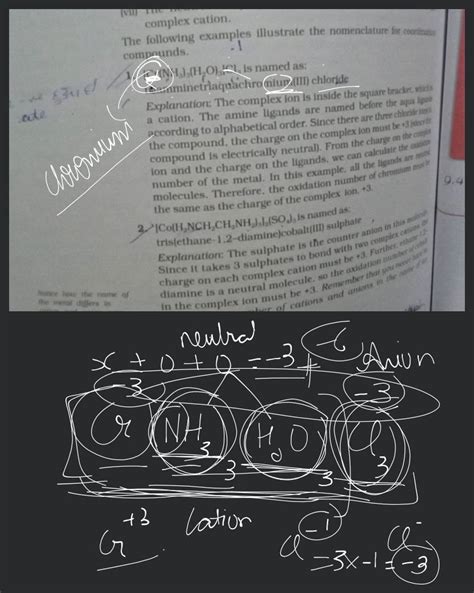 (viii) The
complex cation.
The following examples illustrate the nomenclature for coordination
compounds.
-1
1. [Cr(NH₃)₃(H₂O)₃]Cl₃ is named as:
triamminetriaquachromium(III) chloride
Explanation: The complex ion is inside the square bracket, which is
a cation. The amine ligands are named before the aqua ligands
according to alphabetical order. Since there are three chloride ions in
the compound, the charge on the complex ion must be +3 (since the
compound is electrically neutral). From the charge on the complex
ion and the charge on the ligands, we can calculate the oxidation
number of the metal. In this example, all the ligands are neutral
molecules. Therefore, the oxidation number of chromium must be
the same as the charge of the complex ion, +3.
chromium
2. [Co(H₂NCH₂CH₂NH₂)₃]₂(SO₄)₃ is named as:
tris(ethane-1,2-diamine)cobalt(III) sulphate
Explanation: The sulphate is the counter anion in this molecule.
Since it takes 3 sulphates to bond with two complex cations, the
charge on each complex cation must be +3. Further,
diamine is a neutral molecule, so the oxidation number of
in the complex ion must be +3. Remember that you never
number of cations and anions in the name of
Notice how the name of
the metal differs in
9.4
neutral
x + 0 + 0 = -3 + -6 Anion
-3 -3
Cr NH₃ H₂O Cl₃
3 3
Cr⁺³ Cation Cl⁻¹ Cl⁻
= 3x-1 = -3